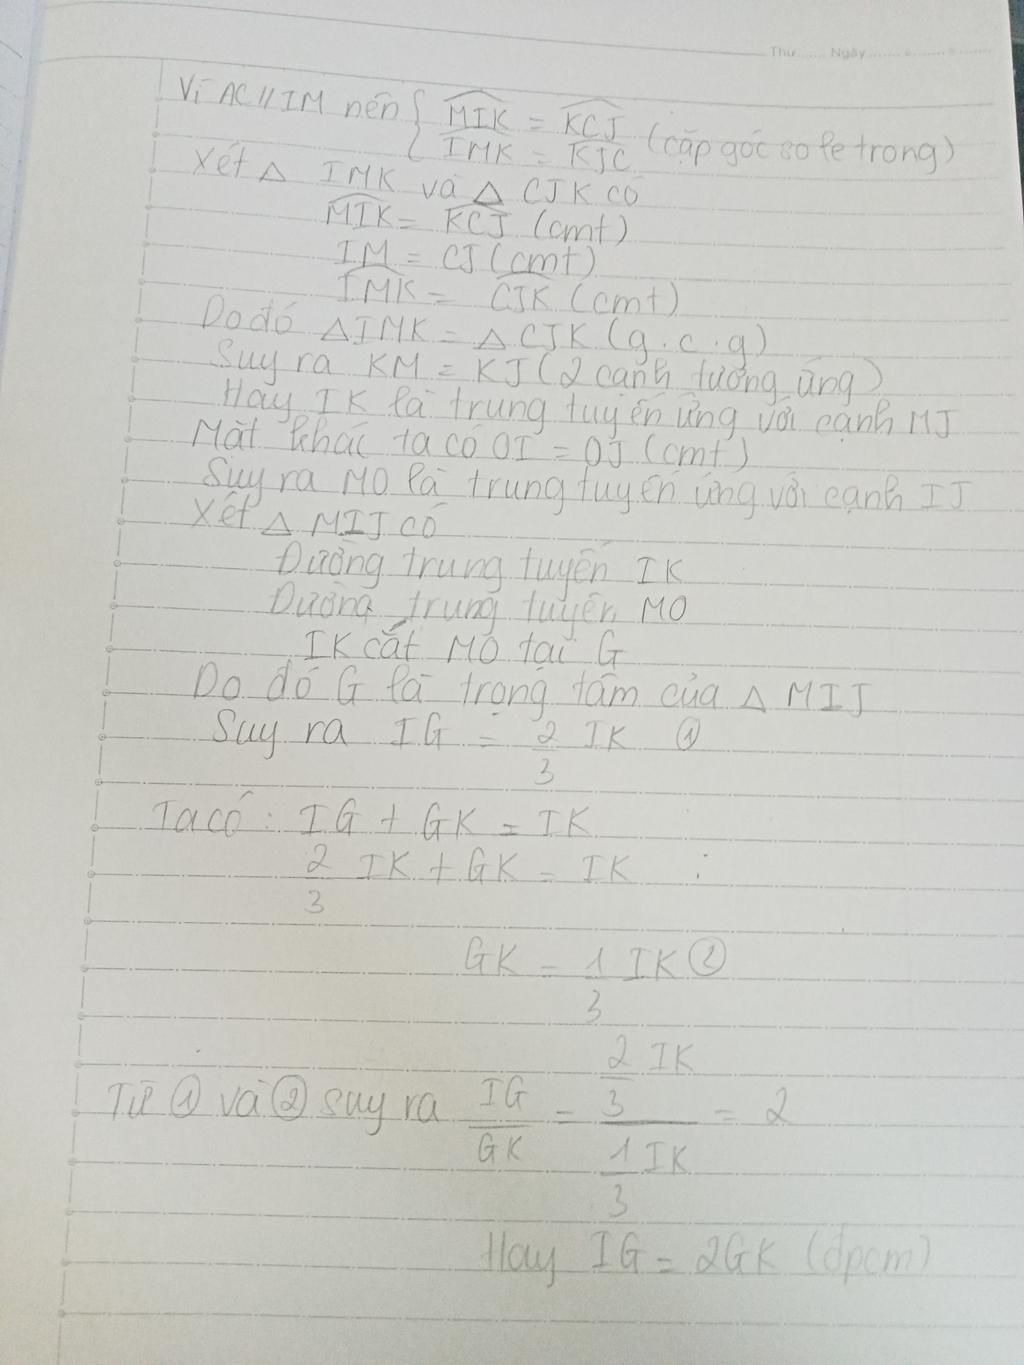 Thứ ...... Ngày ......
Vì AC // IM nên { MIK = KCJ
IMK = KJC (cặp góc so le trong)
Xét △ IMK và △ CJK có
MIK = KCJ (cmt)
IM = CJ (cmt)
IMK = CJK (cmt)
Do đó △IMK = △CJK (g.c.g)
Suy ra KM = KJ (2 cạnh tương ứng)
Hay IK là trung tuyến ứng với cạnh MJ
Mặt khác ta có OI = OJ (cmt)
Suy ra MO là trung tuyến ứng với cạnh IJ
Xét △ MIJ có
Đường trung tuyến IK
Đường trung tuyến MO
IK cắt MO tại G
Do đó G là trọng tâm của △ MIJ
Suy ra IG = 2/3 IK ①
Ta có : IG + GK = IK
2/3 IK + GK = IK
GK = 1/3 IK ②
Từ ① và ② suy ra IG/GK = (2/3 IK)/(1/3 IK) = 2
Hay IG = 2GK (đpcm)